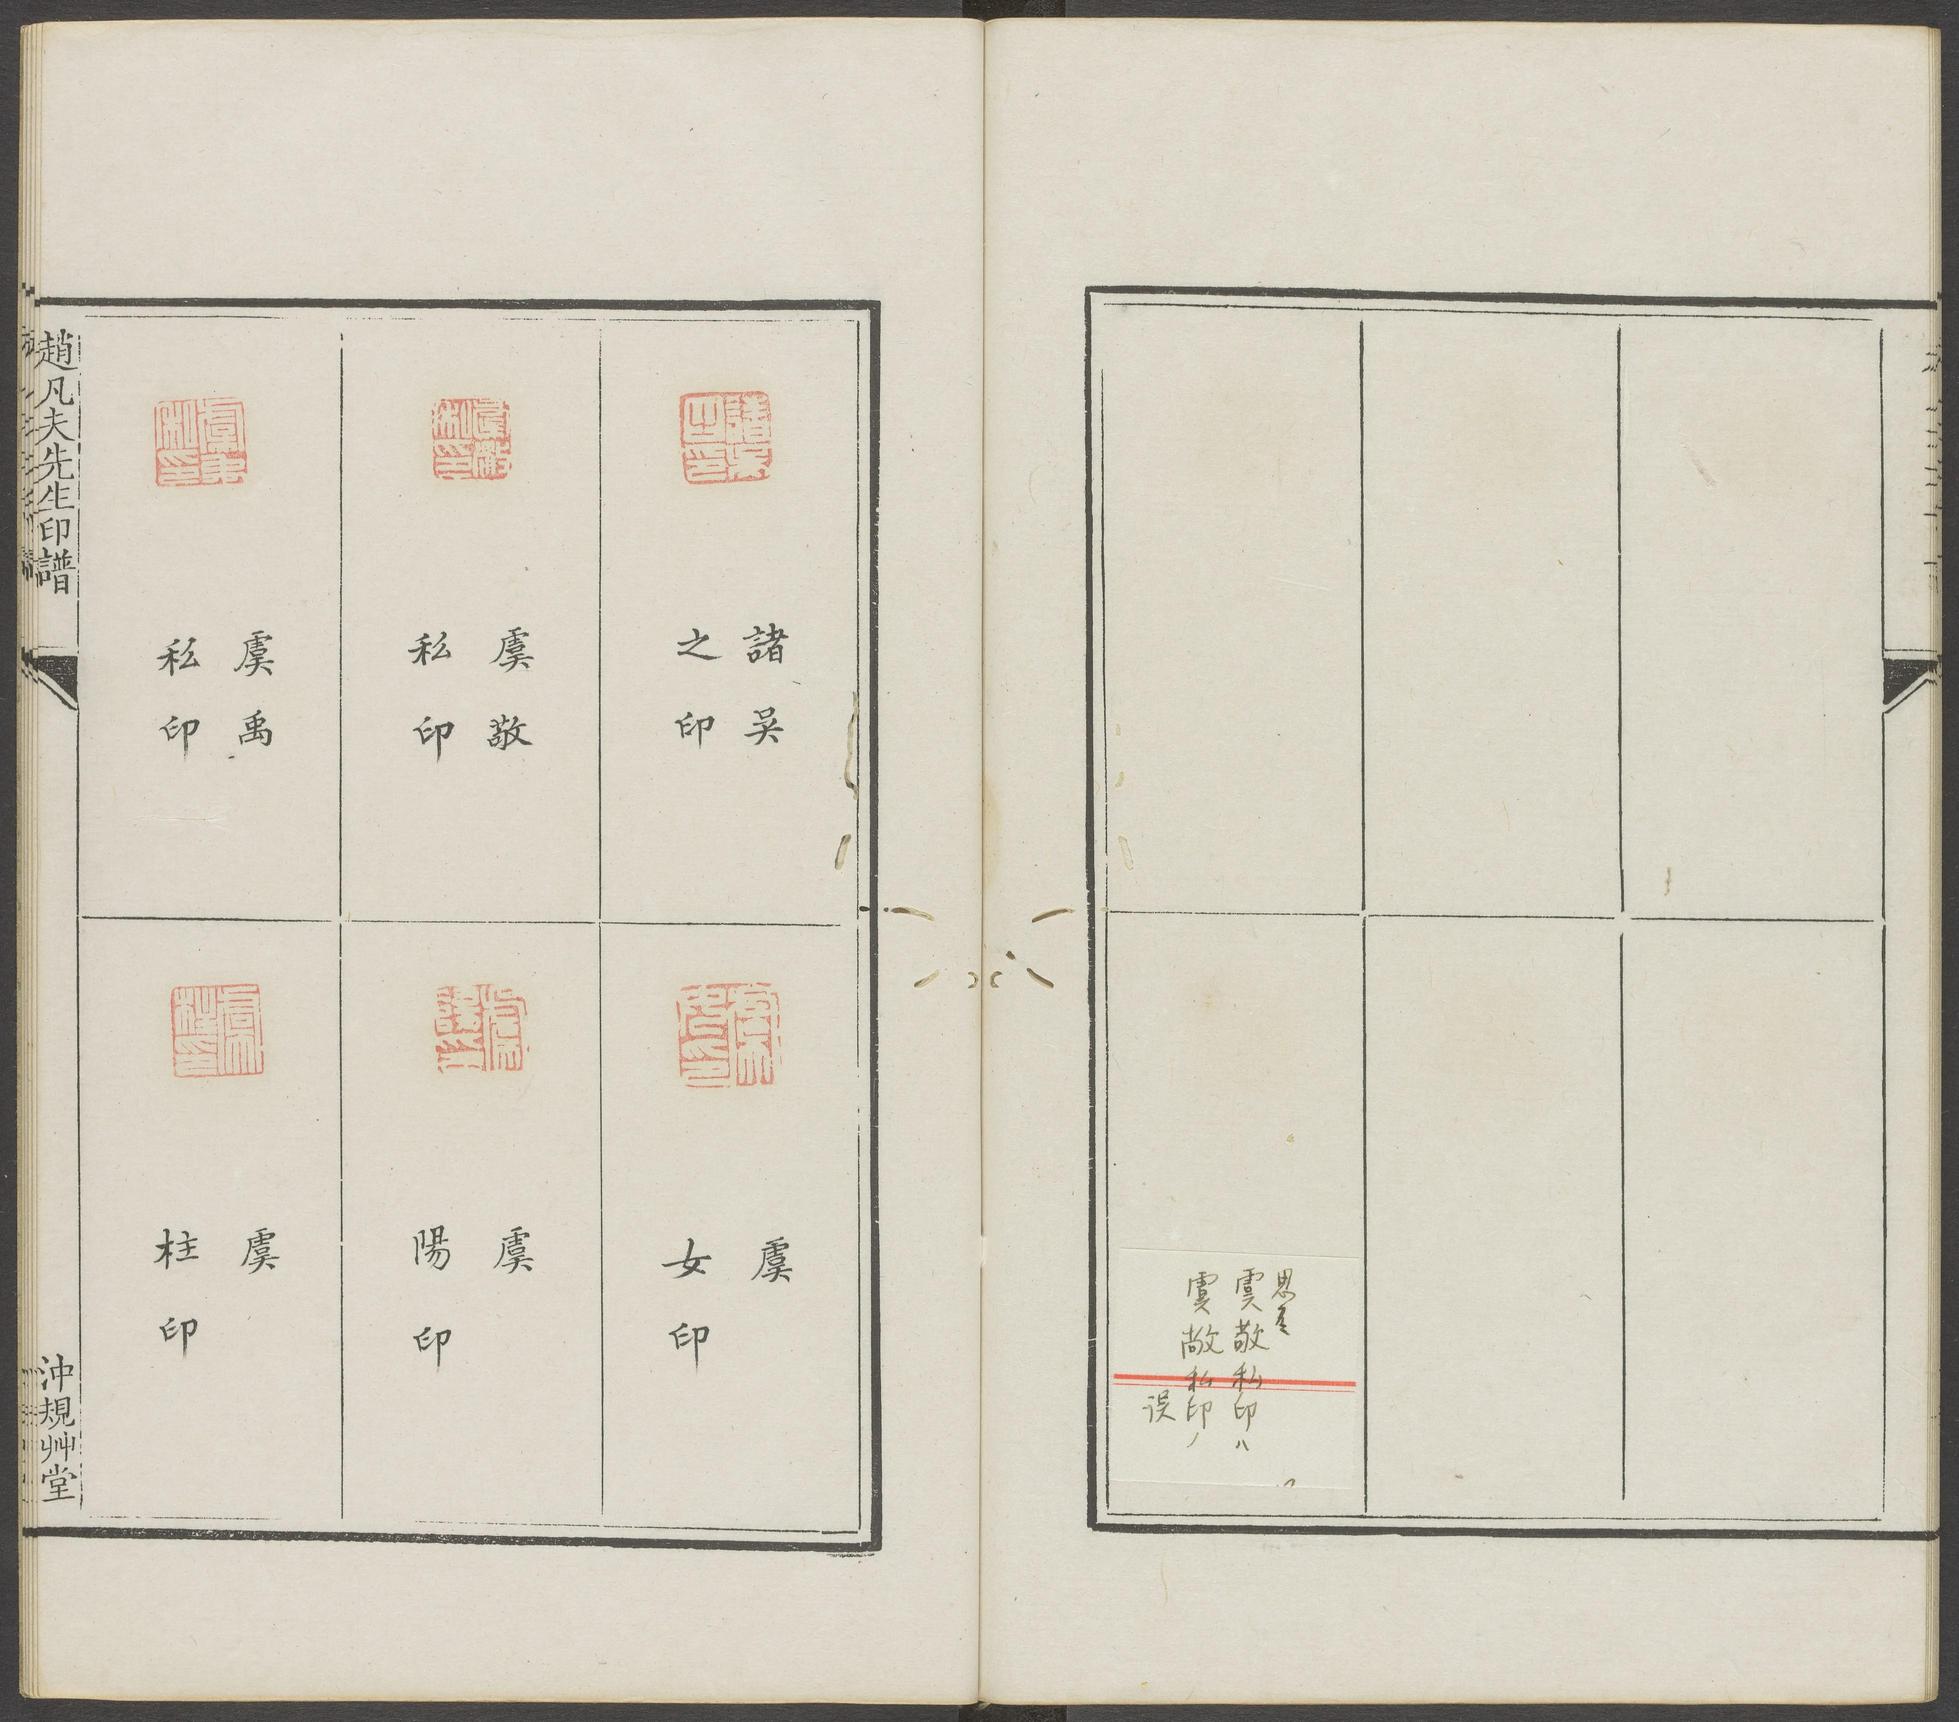 虞敬私印八
虞敞私印
误
諸吳
之印
虞
女印
虞敬
私印
虞
陽印
虞禹
私印
虞
柱印
趙凡夫先生印譜
沖規艸堂